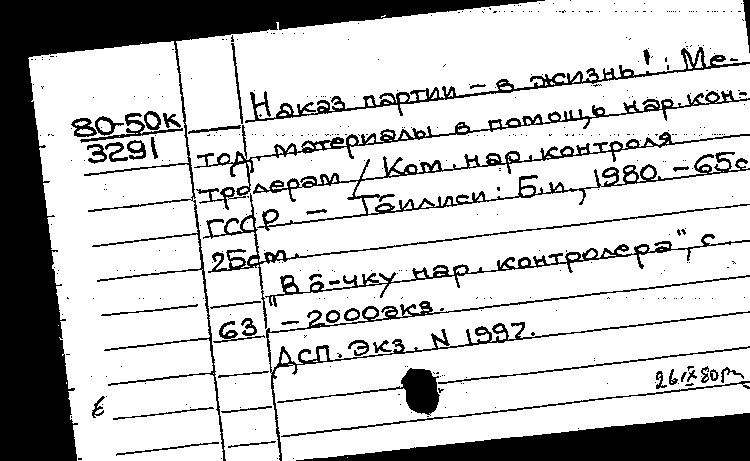 Наказ партии - в жизнь! : Ме-
80-50к
3291
тод. материалы в помощь нар. кон-
тролерам / Ком. нар. контроля
ГССР. - Тбилиси : Б.и., 1980. - 65с
25см.
"В б-чку нар. контролера", с.
63. - 2000экз.
ДСП. Экз. N 1992.
26 IX 80